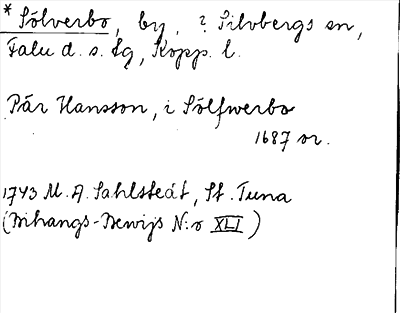 * Sölverbo, by, ? Silvbergs sn,
Falu d. s. lg, Kopp. l.
Pär Hansson, i Sölfwerbo
1687 or.
1743 M. A. Sahlstedt, St. Tuna
(Bihangs-Bewijs N:o XLI)